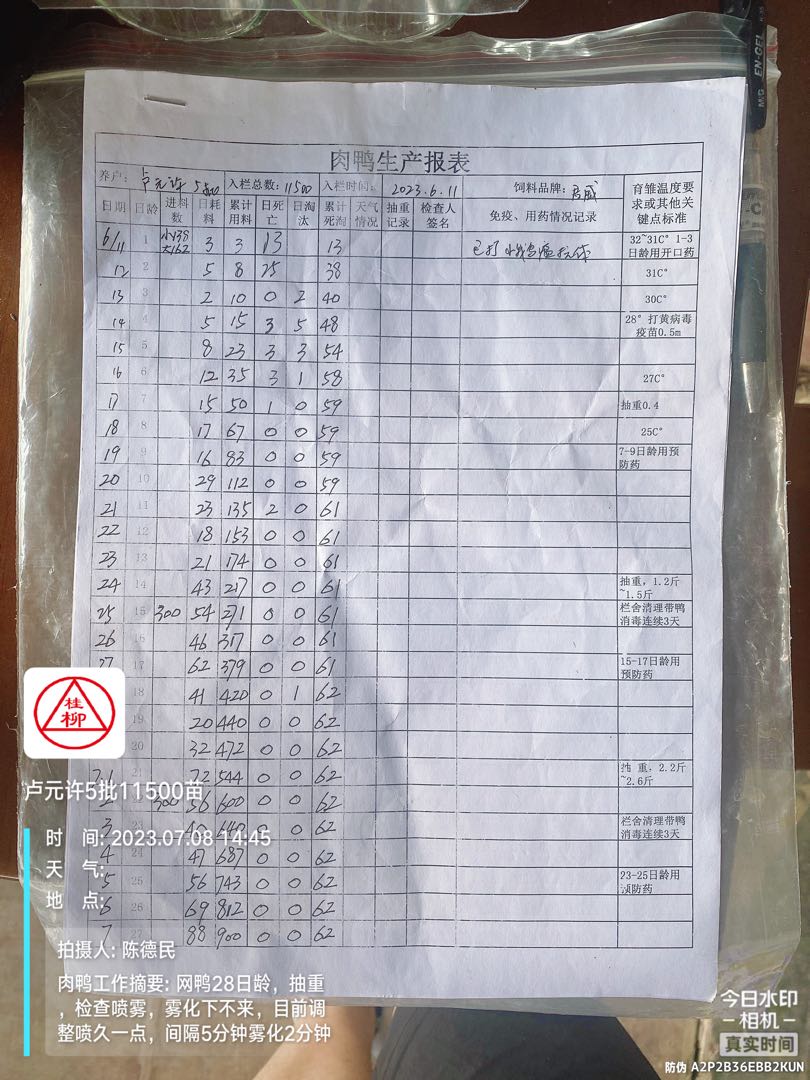 EN-GEL
肉鸭生产报表
养户: 卢元许 入栏总数: 11500 入栏时间: 2023.6.11 饲料品牌: 育雏温度要求或其他关键点标准
日期 日龄 进料数 日耗料 累计用料 日死亡 日淘汰 累计死淘 天气情况 抽重记录 检查人签名 免疫、用药情况记录
6/11 1 小138 大162 3 3 13 13 已打 32~31C° 1-3日龄用开口药
12 2 5 8 25 38 31C°
13 3 2 10 0 2 40 30C°
14 4 5 15 3 5 48 28° 打黄病毒疫苗0.5m
15 5 8 23 3 3 54
16 6 12 35 3 1 58 27C°
17 7 15 50 1 0 59 抽重0.4
18 8 17 67 0 0 59 25C°
19 9 16 83 0 0 59 7-9日龄用预防药
20 10 29 112 0 0 59
21 11 23 135 2 0 61
22 12 18 153 0 0 61
23 13 21 174 0 0 61
24 14 43 217 0 0 61 抽重，1.2斤~1.5斤
25 15 300 54 271 0 0 61 栏舍清理带鸭消毒连续3天
26 16 46 317 0 0 61
27 17 62 379 0 0 61 15-17日龄用预防药
18 41 420 0 1 62
19 20 440 0 0 62
20 32 472 0 0 62
21 72 544 0 0 62 抽重，2.2斤~2.6斤
2 300 56 600 0 0 62
3 23 40 640 0 0 62 栏舍清理带鸭消毒连续3天
4 24 47 687 0 0 62
5 25 56 743 0 0 62 23-25日龄用预防药
6 26 69 812 0 0 62
7 27 88 900 0 0 62
桂柳
卢元许5批11500苗
时 间: 2023.07.08 14:45
天 气:
地 点:
拍摄人: 陈德民
肉鸭工作摘要: 网鸭28日龄，抽重
，检查喷雾，雾化下不来，目前调
整喷久一点，间隔5分钟雾化2分钟
今日水印
-相机-
真实时间
防伪 A2P2B36EBB2KUN